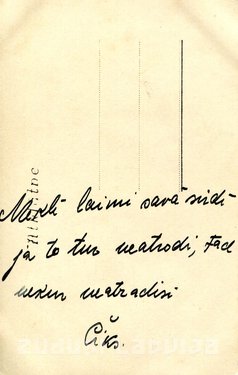 Meklē laimi savā sirdī
ja to tur neatrodi, tad
nekur neatradīsi
Čiks.